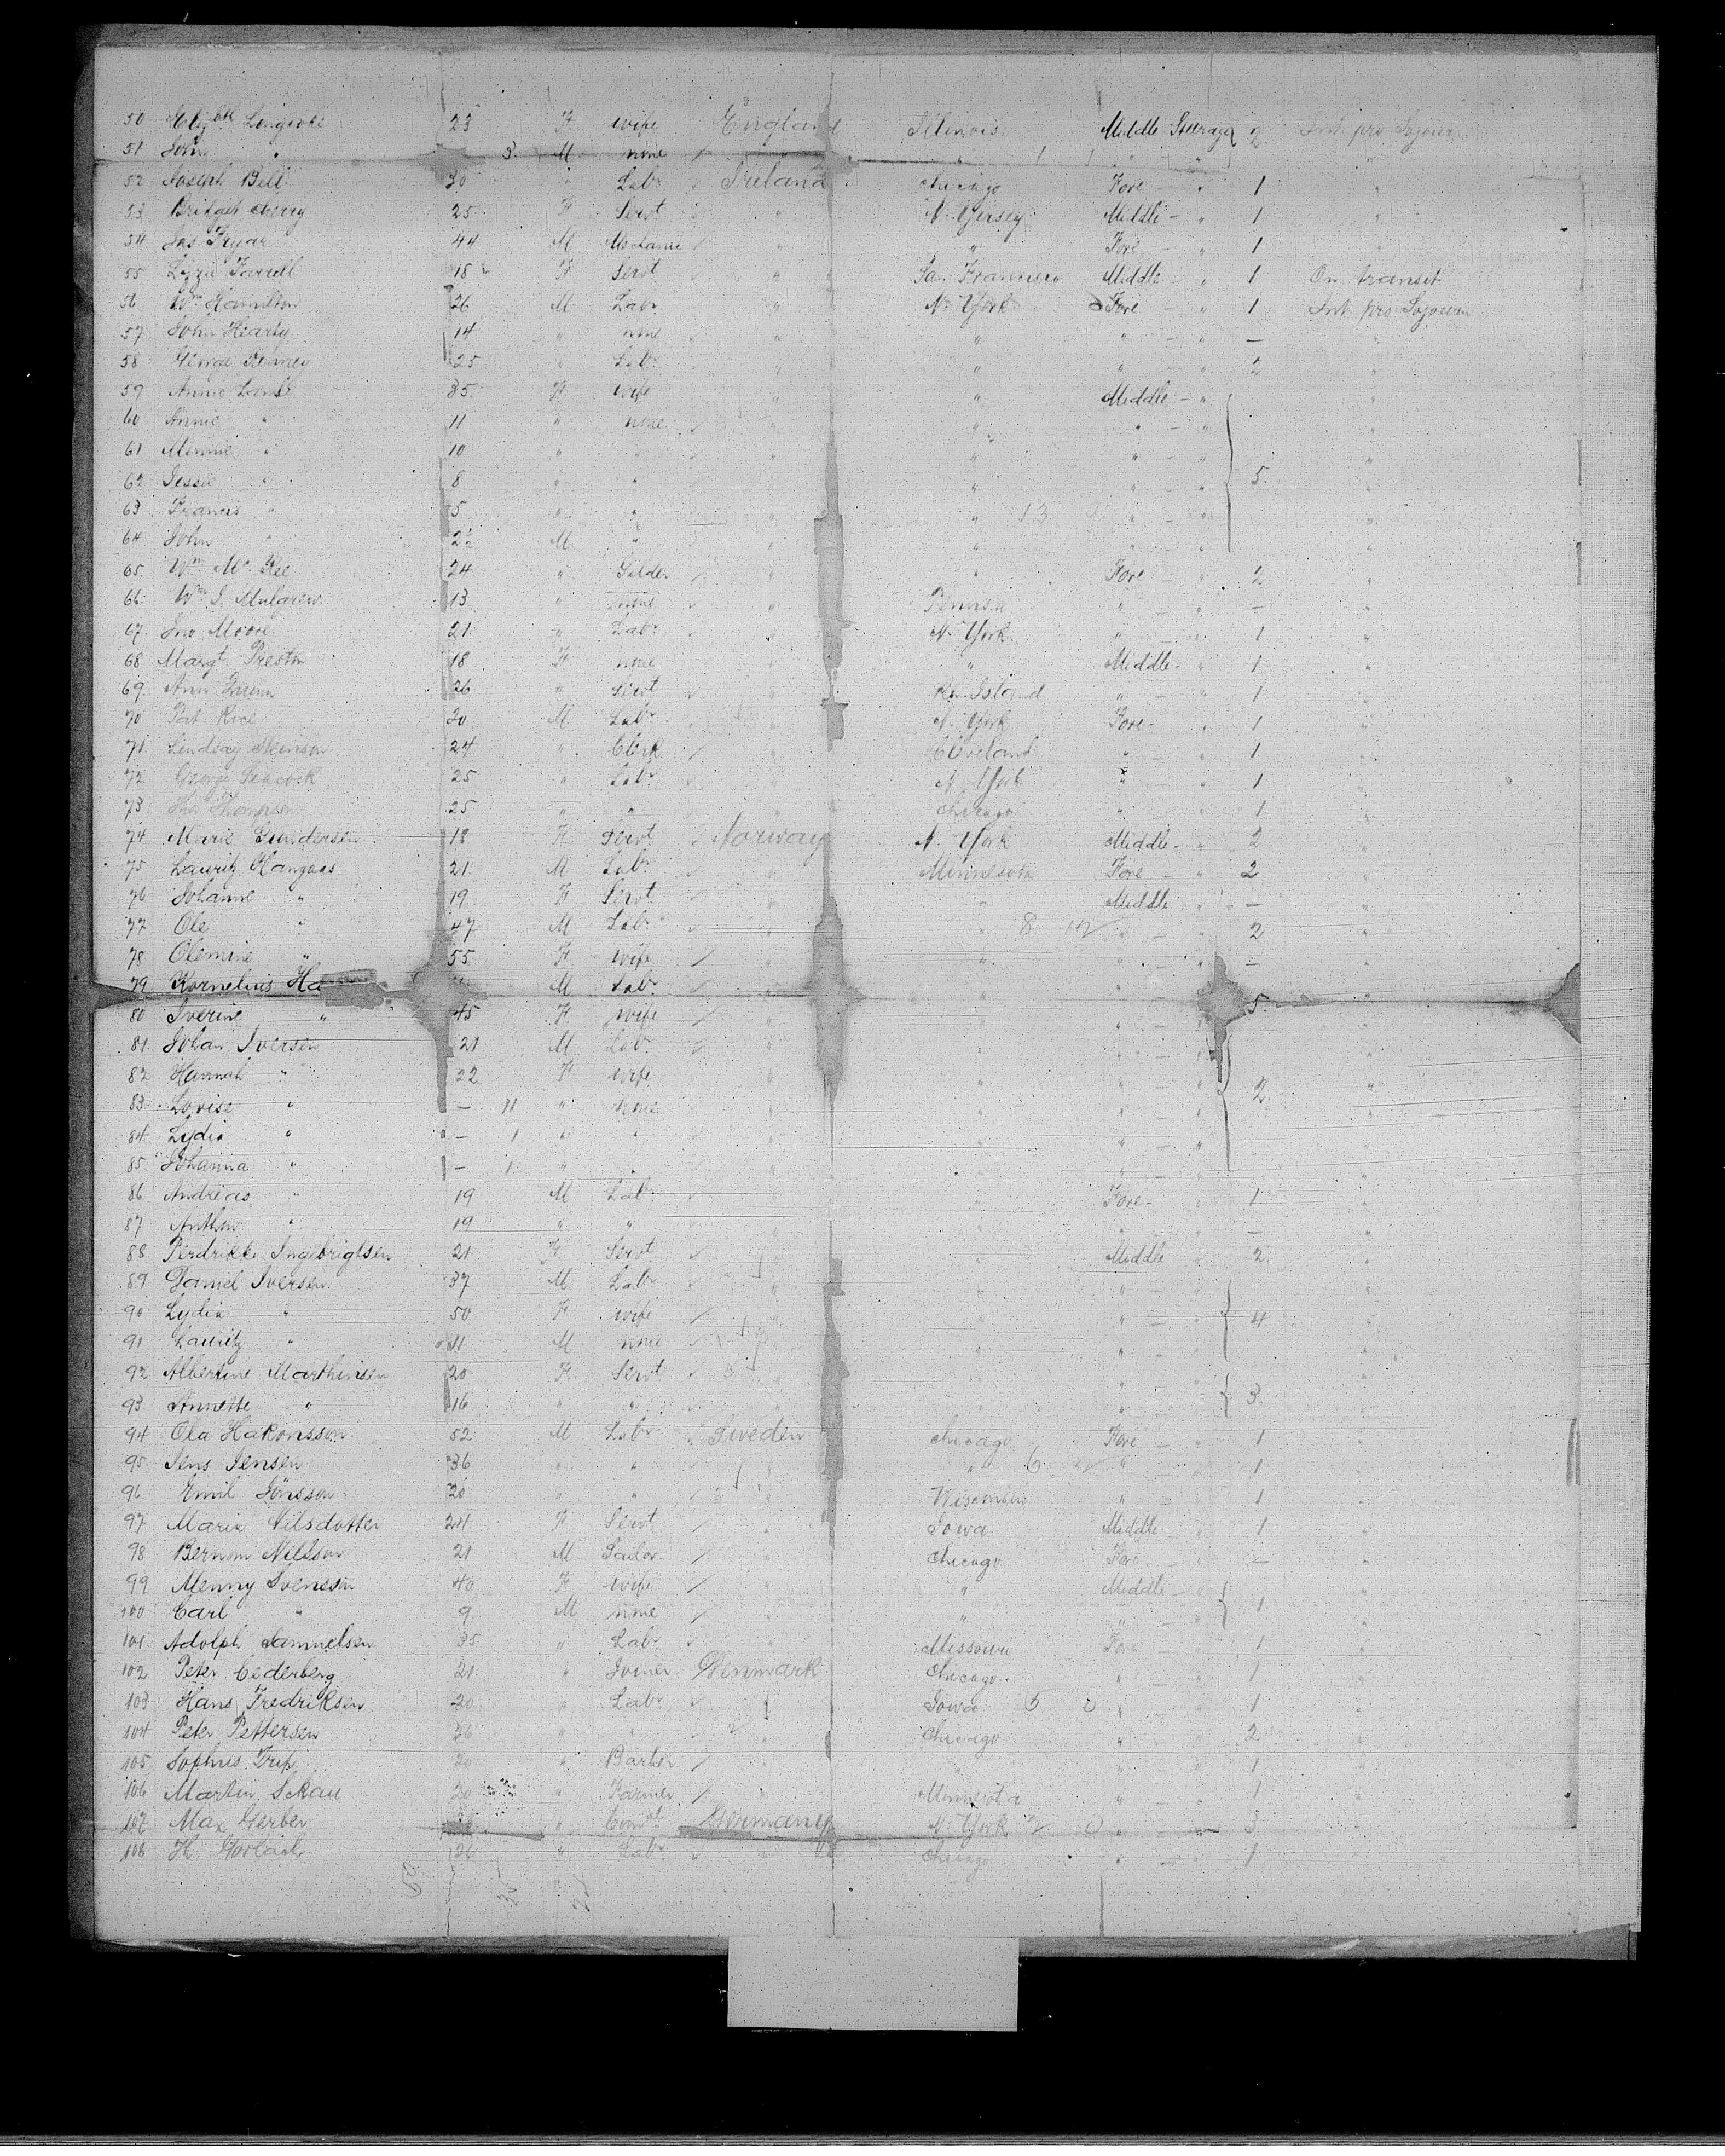 50 Elizbth 23 F wife England Illinois Middle Steerage 2 Int. pro Sojourn
51 John " 3 M none " " " "
52 Joseph Bell 30 " Labr Ireland Chicago Fore - " 1 "
53 Bridget Cherry 25 F Servt " N. Jersey Middle - " 1 "
54 Jas Fryar 44 M Mechanic " " Fore - " 1 "
55 Lizzie Farrell 18 F Servt " San Francisco Middle - " 1 On transit
56 Wm Hamilton 26 M Labr " N. York Fore - " 1 Int. pro Sojourn
57 John Hearty 14 " none " " " - " — "
58 George Kenney 25 " Labr " " " - " 2 "
59 Annie Lamb 35 F wife " " Middle - " "
60 Annie " 11 " none " " " - " "
61 Minnie " 10 " " " " " - " "
62 Jessie " 8 " " " " " - " 5 "
63 Francis " 5 " " " " 13 " - " "
64 John " 2½ M " " " " - " "
65 Wm Mc Kee 24 " " " Fore - " 2 "
66 Wm J. Mulgrew 13 " none " Penns.a " - " — "
67 Jno Moore 21 " Labr " N. York " - " 1 "
68 Margt Preston 18 F none " " Middle - " 1 "
69 Ann 26 " Servt " Rh. Island " - " 1 "
70 Pat Rice 20 M Labr " N. York Fore - " 1 "
71 Lindsay 24 " Clerk " Cleveland " - " 1 "
72 George Peacock 25 " Labr " N. York " - " 1 "
73 25 " " " Chicago " - " 1 "
74 Marie Gundersen 18 F Servt Norway N. York Middle - " 2 "
75 Lauritz Hangaas 21 M Labr " Minnesota Fore - " 2 "
76 Johanne " 19 F Servt " " Middle " — "
77 Ole " 47 M Labr " " 8 " - " 2 "
78 Olemine " 55 F wife " " " - " — "
79 Kornelius Ha M Labr " " " - " "
80 Iverine " 45 F wife " " " - " 5 "
81 Johan Iversen 21 M Labr " " " - " "
82 Hannah " 22 F wife " " " - " 2 "
83 Lovise " — 11 " none " " " - " "
84 Lydia " — 1 " " " " " - " "
85 Johanna " — 1 " " " " " - " "
86 Andreas " 19 M Labr " " Fore - " 1 "
87 Anthon " 19 " " " " " - " — "
88 Perdrikke Ingebrigtsen 21 F Servt " " Middle " 2 "
89 Daniel Iversen 37 M Labr " " " - " "
90 Lydia " 50 F wife " " " - " 4 "
91 Lauritz " 11 M none " " " - " "
92 Albertine Marthinsen 20 F Servt " " " - " "
93 Annette " 16 " " " " " - " 3 "
94 Ola Hakonsson 52 M Labr Sweden Chicago Fore - " 1 "
95 Jens Jensen 36 " " " " 6 " " 1 "
96 Emil Jönsson 20 " " " Wisconsin " - " 1 "
97 Maria Nilsdotter 24 F Servt " Iowa Middle - " 1 "
98 Nilsson 21 M Sailor " Chicago Fore - " — "
99 Menny Svensson 40 F wife " " Middle - " "
100 Carl " 9 M none " " " - " 1 "
101 Adolph Samuelsen 35 " Labr " Missouri Fore " 1 "
102 Peter Cederberg 21 " Joiner Denmark Chicago " - " 1 "
103 Hans Fredriksen 20 " Labr " Iowa 5 0 " - " 1 "
104 Peter Pettersen 36 " " " Chicago " - " 2 "
105 Sophus 20 " Barber " " " - " 1 "
106 Martin Schau 20 " Farmer " Minnesota " - " 1 "
107 Max Gerber " Germany N. York 2 0 " - 3 "
108 H. 26 " Labr " Chicago " - " 1 "